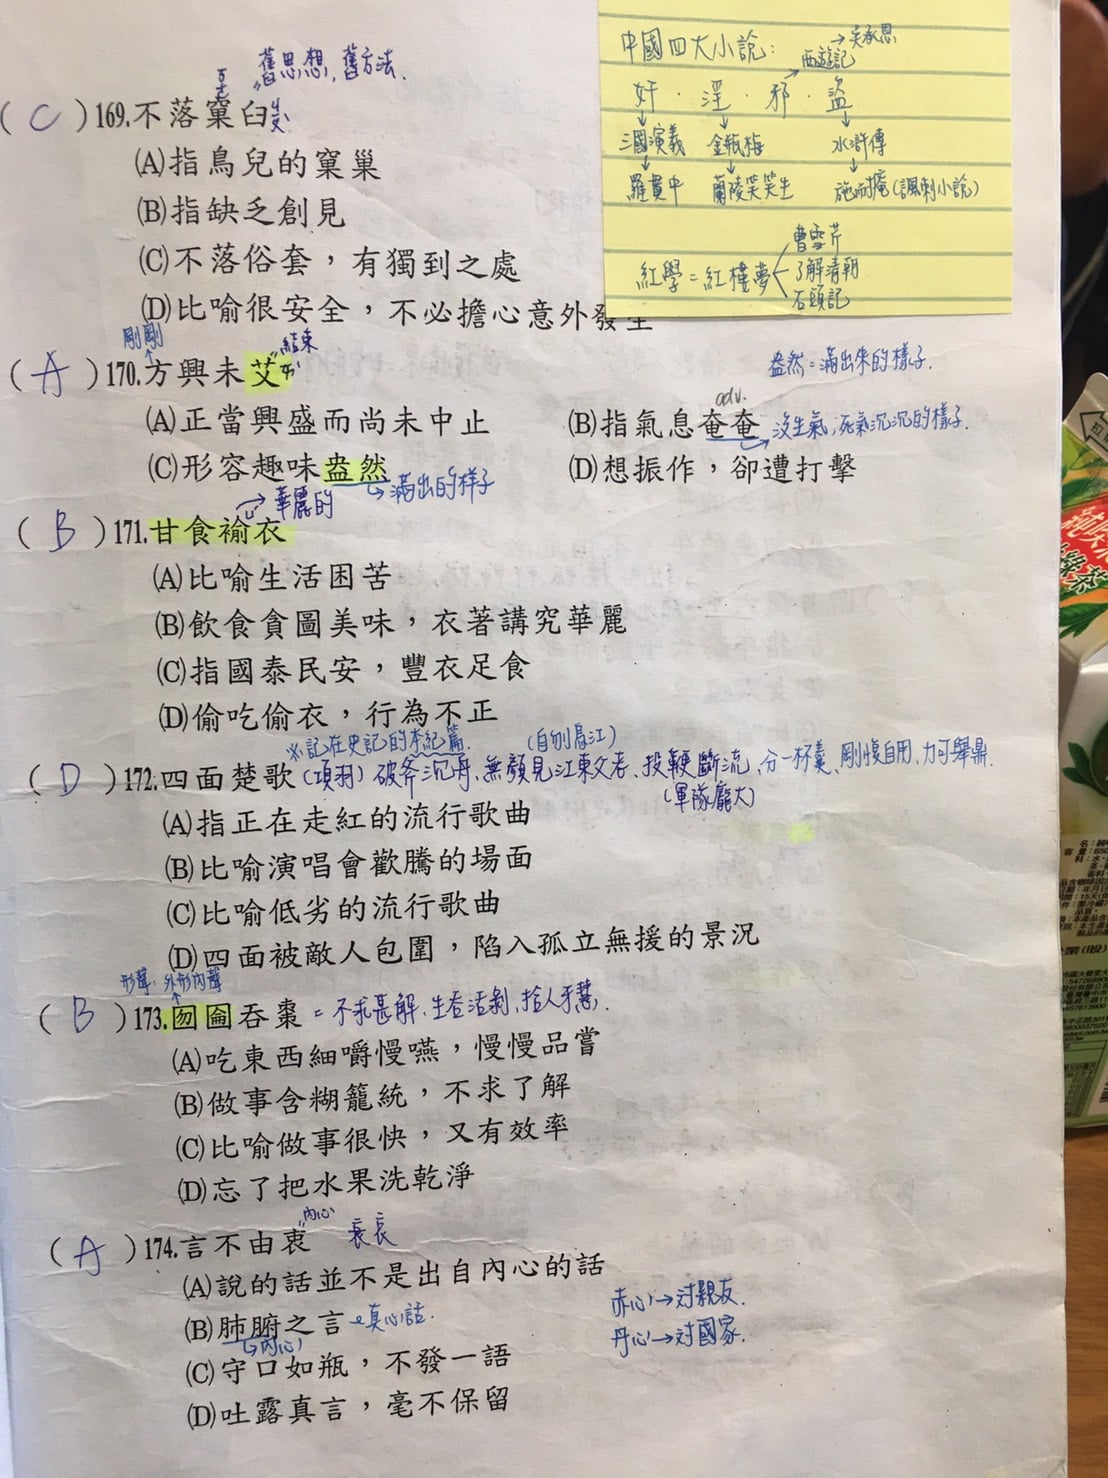 中國四大小說：
西遊記→吳承恩
奸．淫．邪．盜
三國演義 金瓶梅 水滸傳
羅貫中 蘭陵笑笑生 施耐庵(諷刺小說)
紅學=紅樓夢
曹雪芹
了解清朝
石頭記
舊思想，舊方法．
(C)169.不落窠臼
(A)指鳥兒的窠巢
(B)指缺乏創見
(C)不落俗套，有獨到之處
(D)比喻很安全，不必擔心意外發生
剛剛
結束
(A)170.方興未艾
盎然=滿出來的樣子．
(A)正當興盛而尚未中止
adv.
(B)指氣息奄奄 沒生氣，死氣沉沉的樣子．
(C)形容趣味盎然 滿出的样子
(D)想振作，卻遭打擊
華麗的
(B)171.甘食褕衣
(A)比喻生活困苦
(B)飲食貪圖美味，衣著講究華麗
(C)指國泰民安，豐衣足食
(D)偷吃偷衣，行為不正
※記在史記的本紀篇． (自刎烏江)
(D)172.四面楚歌(項羽)破斧沉舟、無顏見江東父老、投鞭斷流、分一杯羹、剛愎自用、力可舉鼎．
(軍隊龐大)
(A)指正在走紅的流行歌曲
(B)比喻演唱會歡騰的場面
(C)比喻低劣的流行歌曲
(D)四面被敵人包圍，陷入孤立無援的景況
形聲．外形內聲
(B)173.囫圇吞棗=不求甚解、生吞活剝、拾人牙慧．
(A)吃東西細嚼慢嚥，慢慢品嘗
(B)做事含糊籠統，不求了解
(C)比喻做事很快，又有效率
(D)忘了把水果洗乾淨
內心
(A)174.言不由衷 衰哀
(A)說的話並不是出自內心的話
(B)肺腑之言 真心話．
內心
赤心→对親友．
丹心→对國家．
(C)守口如瓶，不發一語
(D)吐露真言，毫不保留